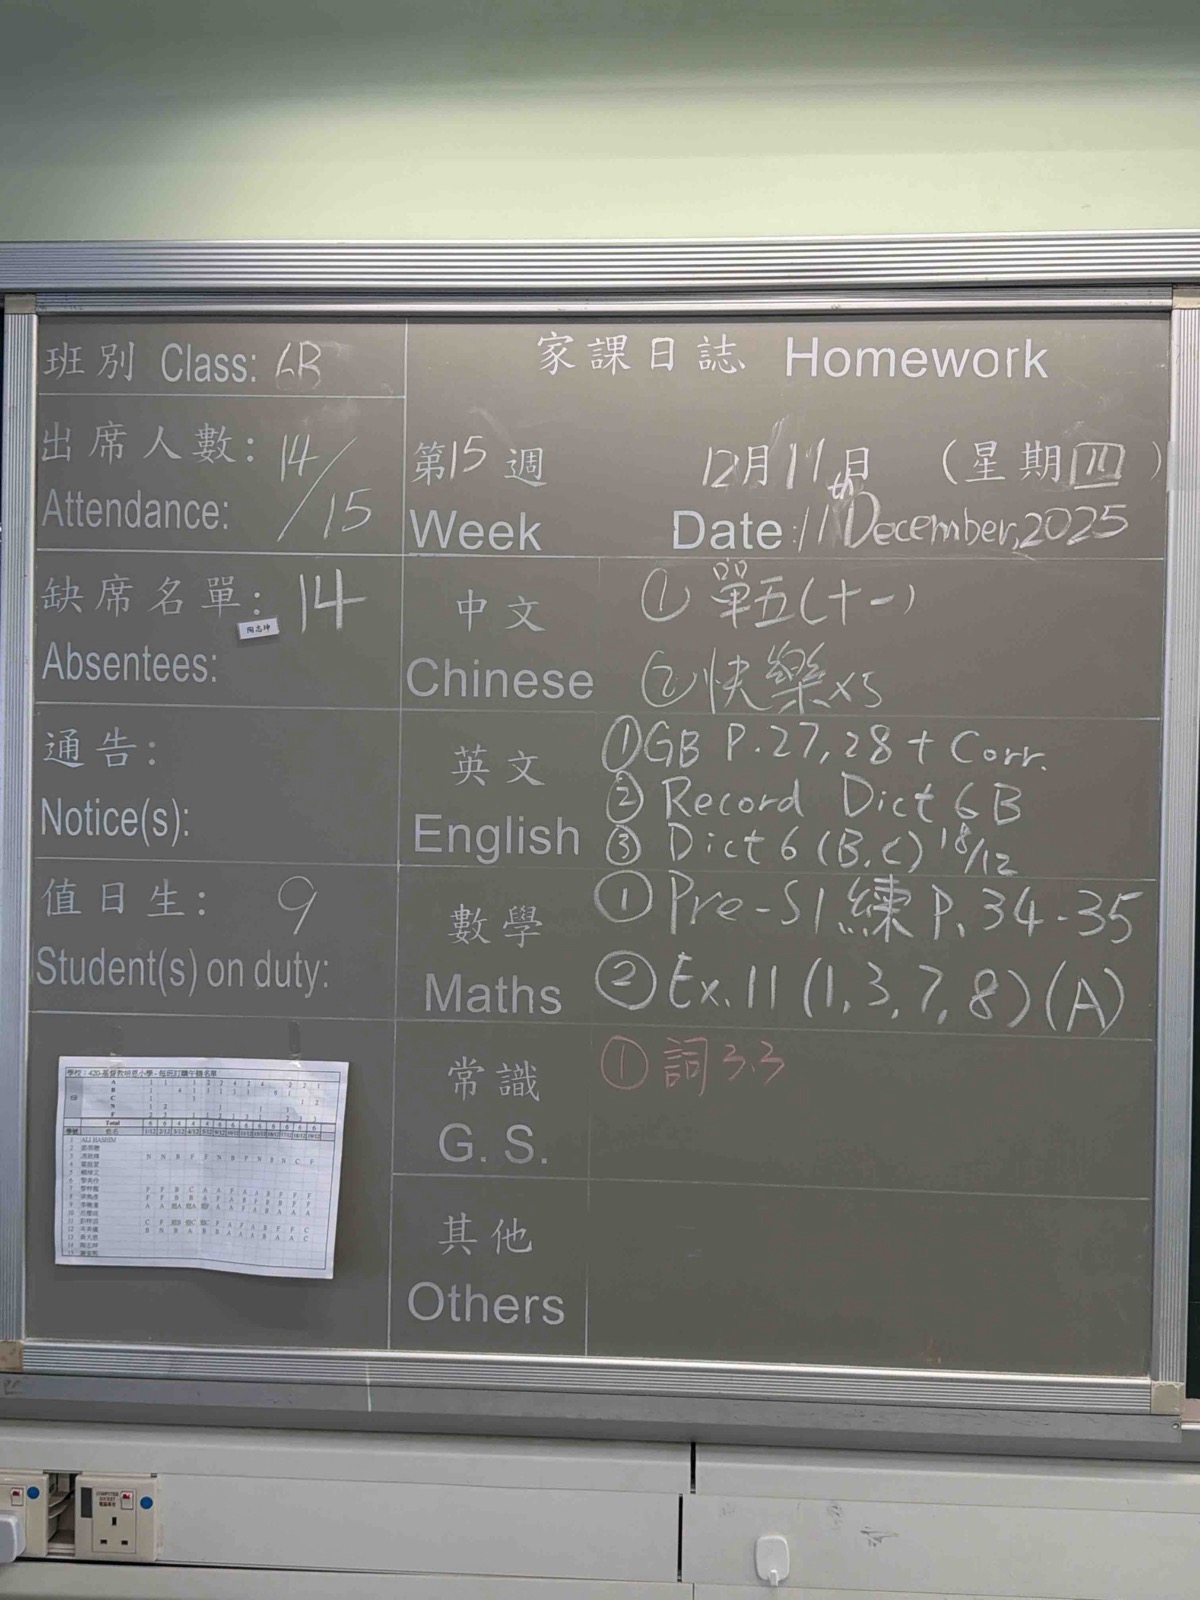 班別 Class: 6B
出席人數: 14/15
Attendance:
缺席名單: 14
陶志坤
Absentees:
通告:
Notice(s):
值日生: 9
Student(s) on duty:
家課日誌 Homework
第15週 12月11日 (星期四)
Week Date: 11th December, 2025
中文 Chinese
① 單五(十一)
② 快樂x5
英文 English
① GB P.27,28 + Corr.
② Record Dict 6B
③ Dict 6 (B,C) 18/12
數學 Maths
① Pre-S1 練 P. 34-35
② Ex.11 (1,3,7,8)(A)
常識 G. S.
① 詞 3.3
其他 Others
A
B
C
N
F
Total
1 ALI HASHIM
COMPUTER SOCKET